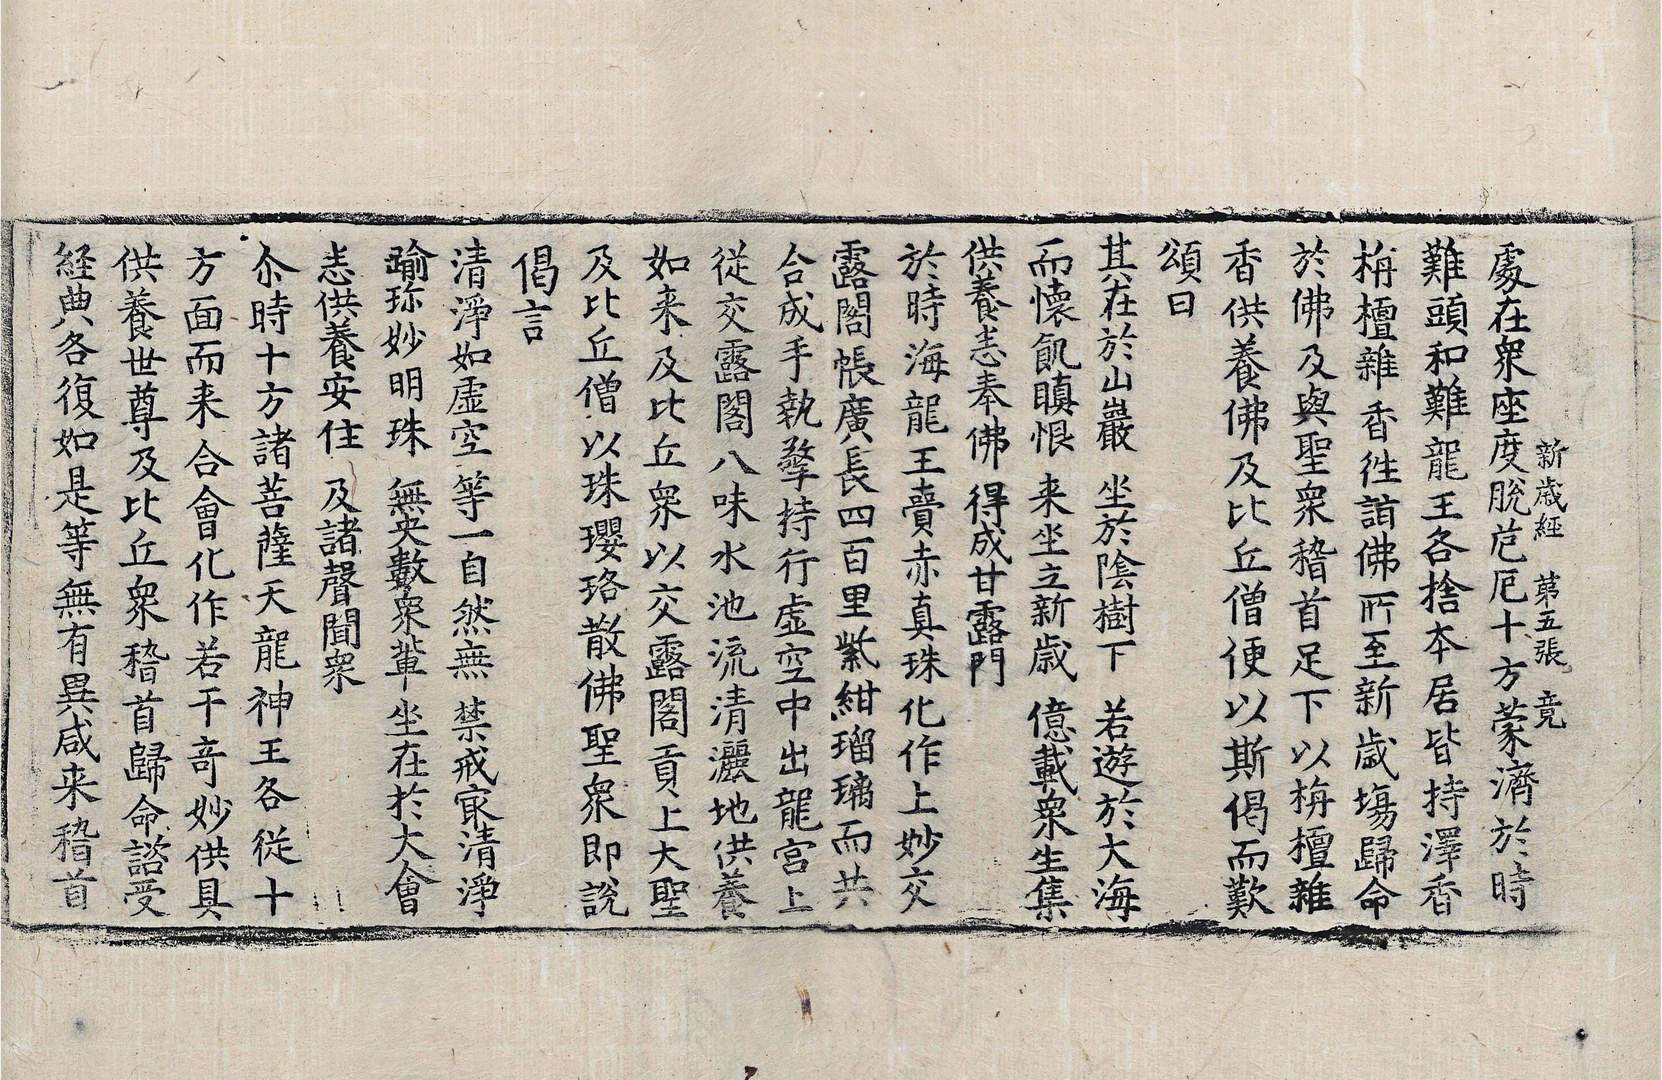 新歲經　第五張　竟
處在衆座度脫危厄十方蒙濟於時
難頭和難龍王各捨本居皆持澤香
栴檀雜香徃詣佛所至新歲塲歸命
於佛及與聖衆稽首足下以栴檀雜
香供養佛及比丘僧便以斯偈而歎
頌曰
其在於山巖　坐於陰樹下　若遊於大海
而懷飢瞋恨　来坐立新歲　億載衆生集
供養恚奉佛　得成甘露門
於時海龍王賣赤真珠化作上妙交
露閣帳廣長四百里紫紺瑠璃而共
合成手執擎持行虛空中出龍宮上
從交露閣八味水池流清灑地供養
如来及比丘衆以交露閣貢上大聖
及比丘僧以珠瓔珞散佛聖衆即說
偈言
清淨如虛空　等一自然無　禁戒㝡清淨
踰珎妙明珠　無央數衆輩　坐在於大會
恚供養安住　及諸聲聞衆
尒時十方諸菩薩天龍神王各從十
方面而来合會化作若干竒妙供具
供養世尊及比丘衆稽首歸命諮受
経典各復如是等無有異咸来稽首